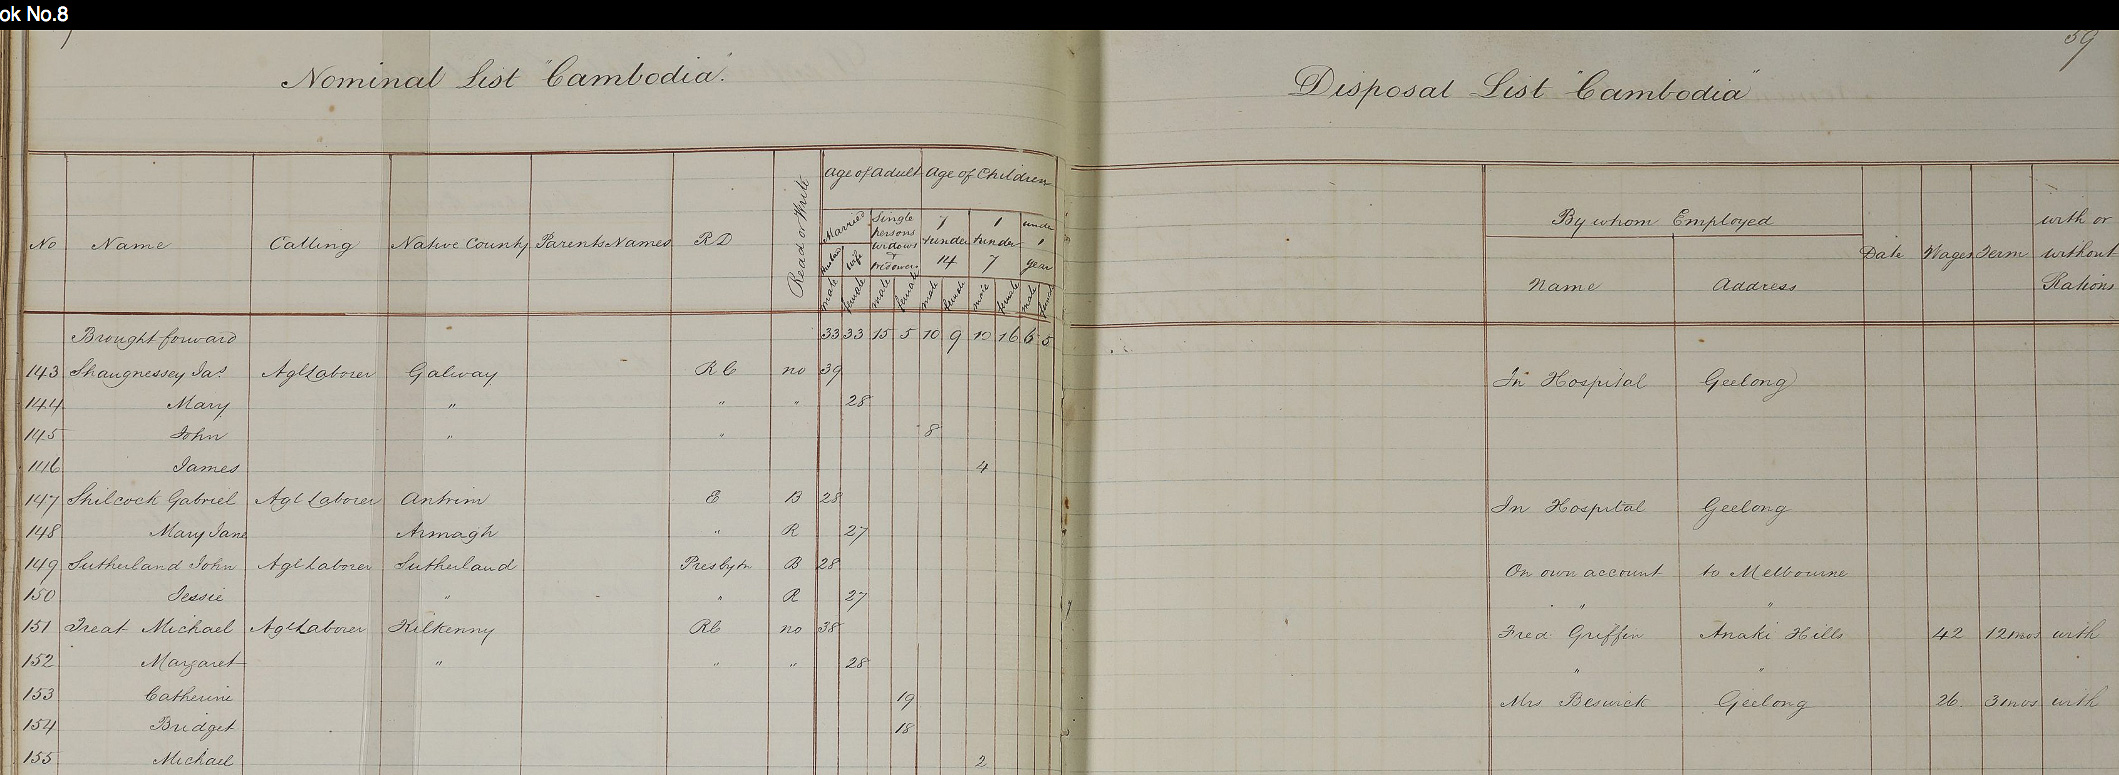 ok No.8
59
Nominal List "Cambodia".
Disposal List "Cambodia"
No Name Calling Native County Parents Names RD Read or Write Age of Adult Age of Children
Married Single persons widows & widowers 7 & under 14 1 & under 7 under 1 year
Husband wife
male female male female male female male female male female
By whom Employed Date Wages Term with or without Rations
Name Address
Brought forward 33 33 15 5 10 9 10 16 6 5
143 Shaugnessey Jas. Agl Laborer Galway RC no 39 In Hospital Geelong
144 Mary " " " 28
145 John " " 8
146 James 4
147 Shilcock Gabriel Agl Laborer Antrim E B 28 In Hospital Geelong
148 Mary Jane Armagh " R 27
149 Sutherland John Agl Laborer Sutherland Presbytn B 28 On own account to Melbourne
150 Jessie " " R 27 " "
151 Treat Michael Agl Laborer Kilkenny RC no 38 Fred. Griffin Anaki Hills 42 12mos with
152 Margaret " " " 28 " "
153 Catherine 19 Mrs Beswick Geelong 26 3mos with
154 Bridget 18
155 Michael 2